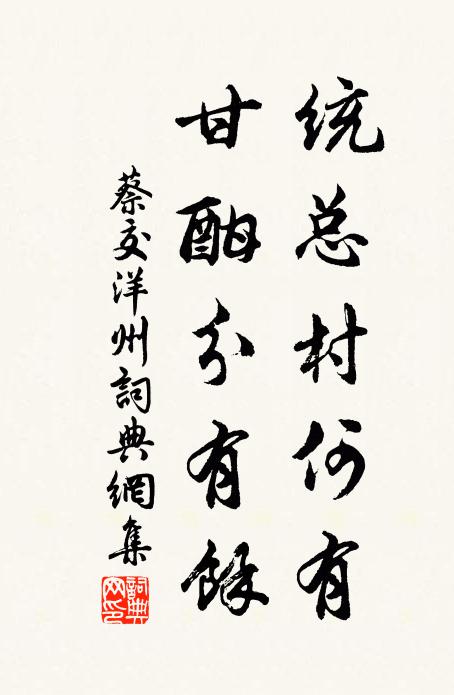 统总村何有
甘酣分有餘
蔡交洋州詞典網集
詞典網印